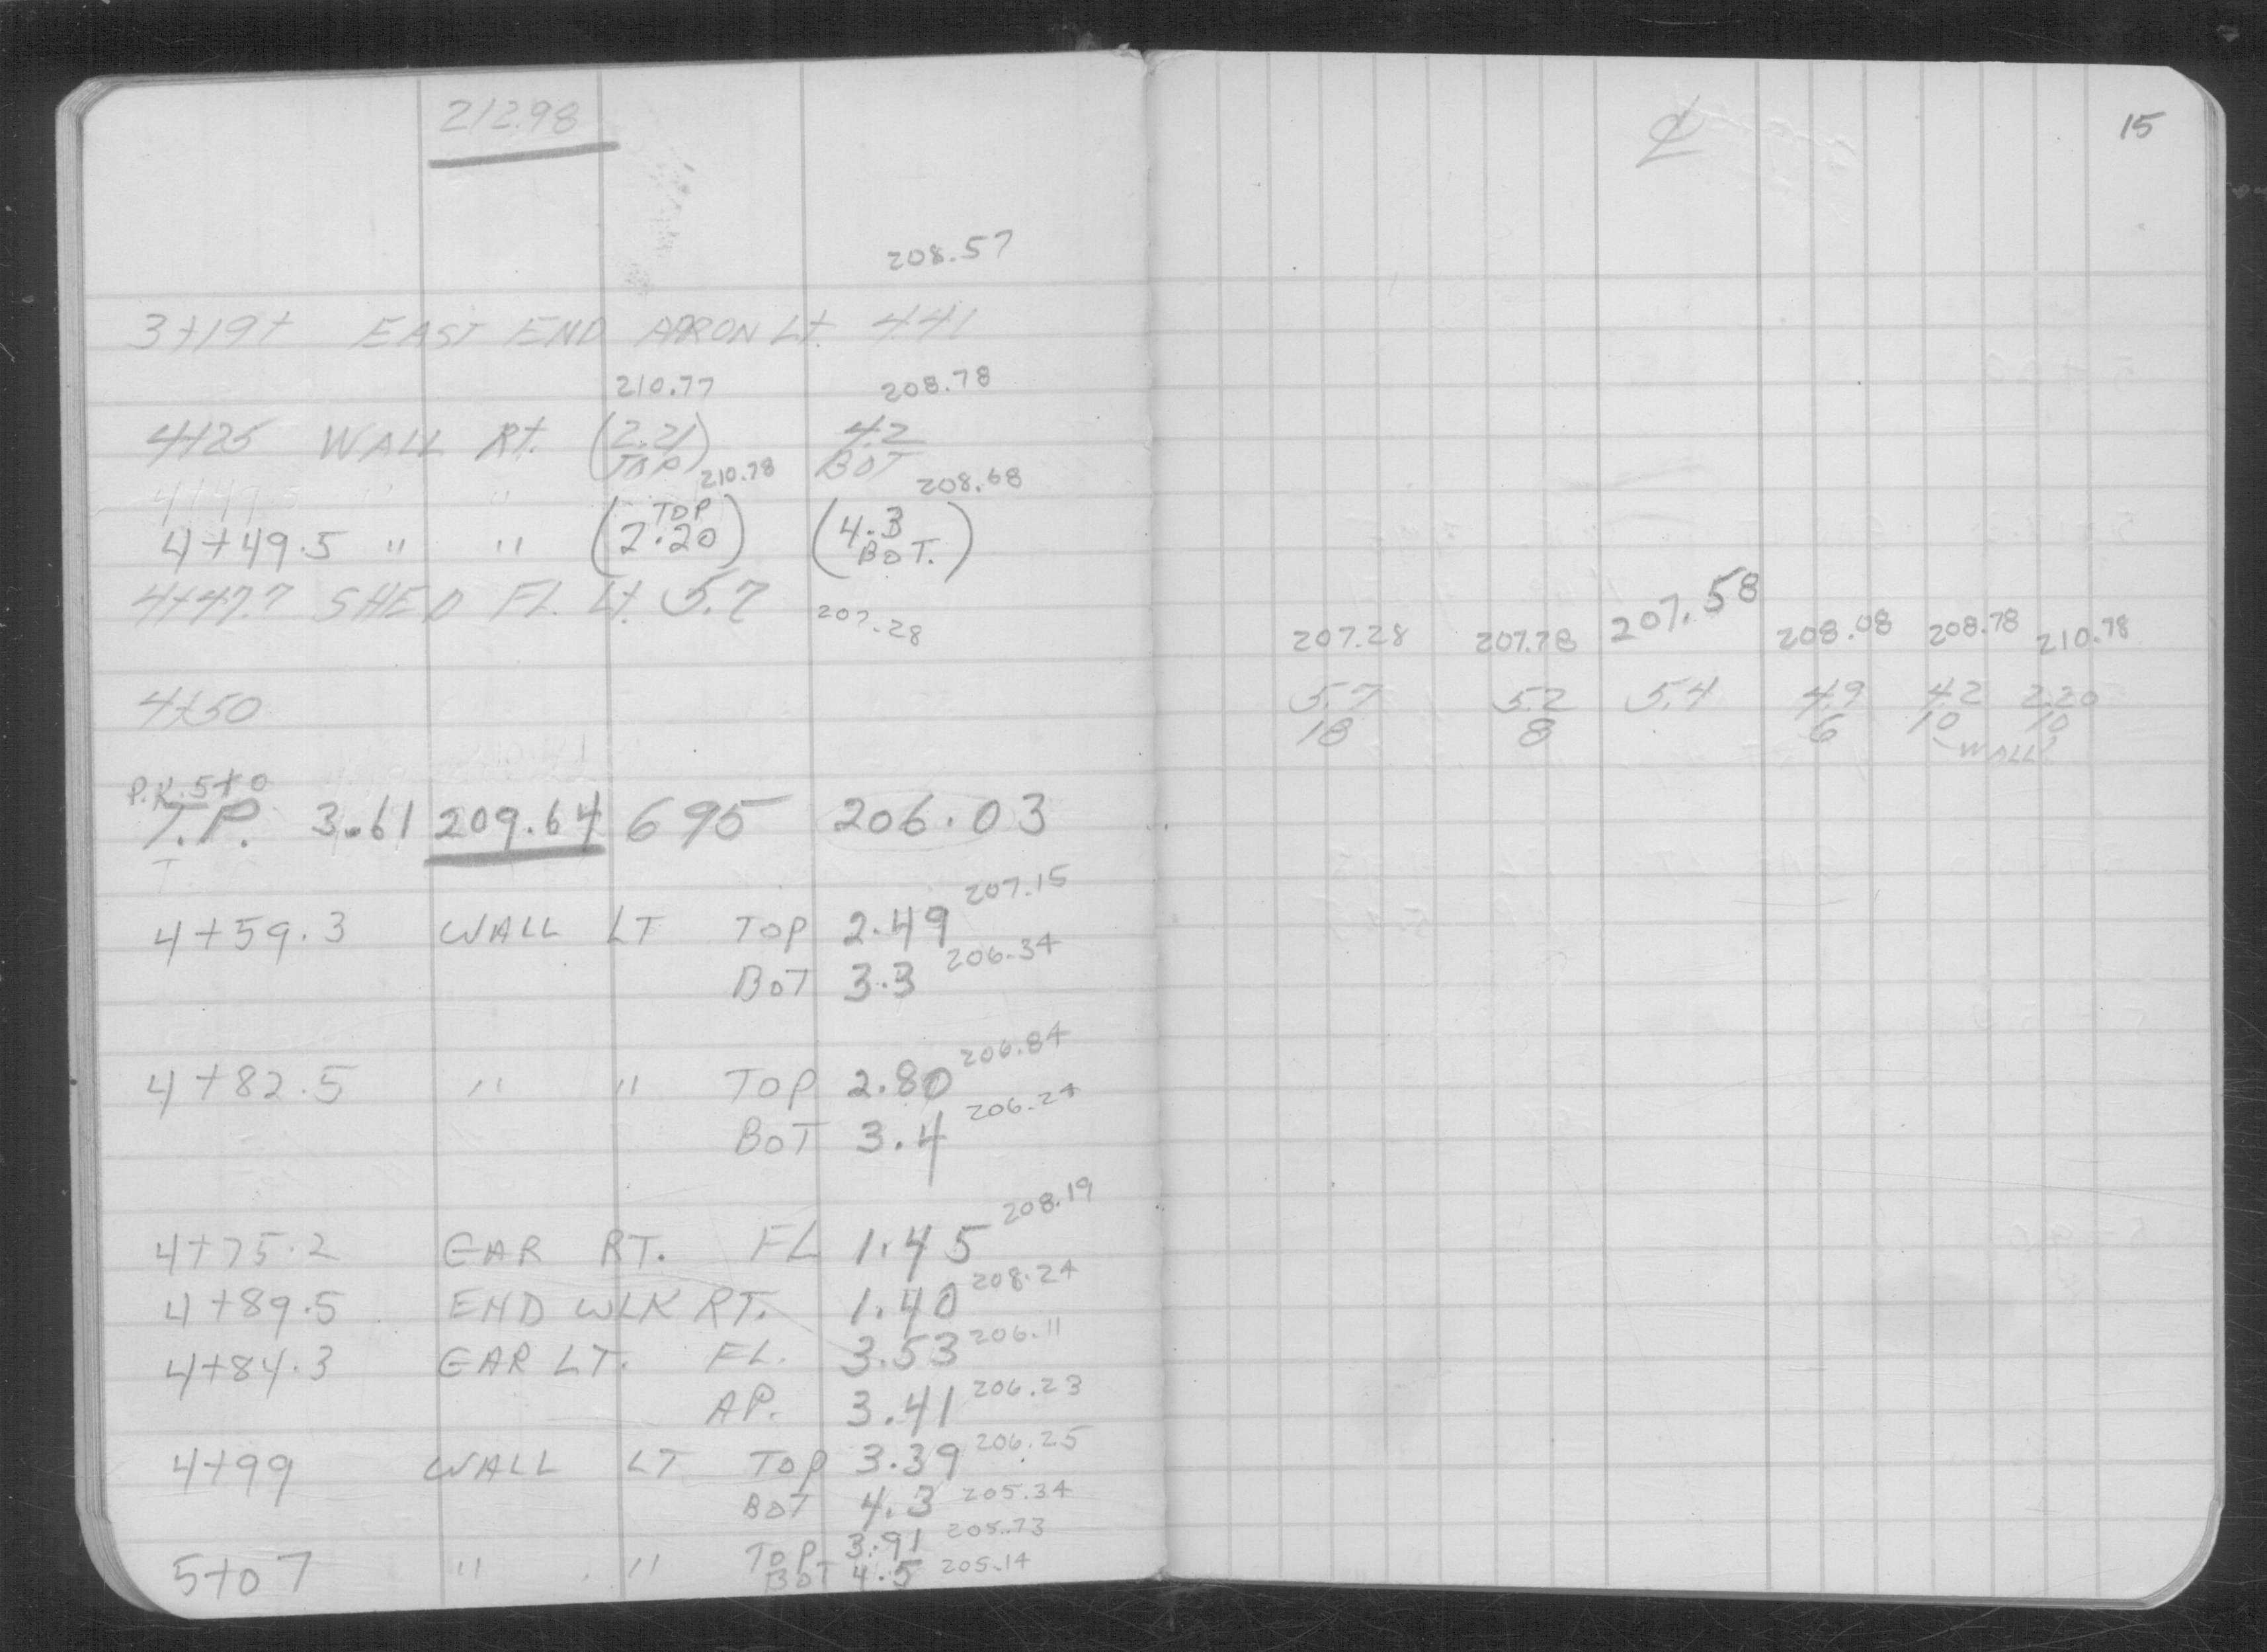 212.98
208.57
3+19+ EAST END APRON Lt. 4.41
210.77 208.78
4+25 WALL Rt. (2.21) 4.2
TOP BOT
210.78 208.68
4+49.5 " "
TOP
4+49.5 " " (2.20) (4.3
BOT.)
4+47.7 SHED FL. Lt. 5.7 207.28
4+50
P.K. 5+0
T.P. 3.61 209.64 695 206.03
4+59.3 WALL LT TOP 2.49 207.15
BOT 3.3 206.34
4+82.5 " " TOP 2.80 206.84
BOT 3.4 206.24
4+75.2 GAR RT. FL 1.45 208.19
4+89.5 END WLK RT. 1.40 208.24
4+84.3 GAR LT. FL. 3.53 206.11
AP. 3.41 206.23
4+99 WALL LT TOP 3.39 206.25
BOT 4.3 205.34
5+07 " " TOP 3.91 205.73
BOT 4.5 205.14
℄ 15
207.28 207.78 207.58 208.08 208.78 210.78
5.7 5.2 5.4 4.9 4.2 2.20
18 8 6 10 10
WALL